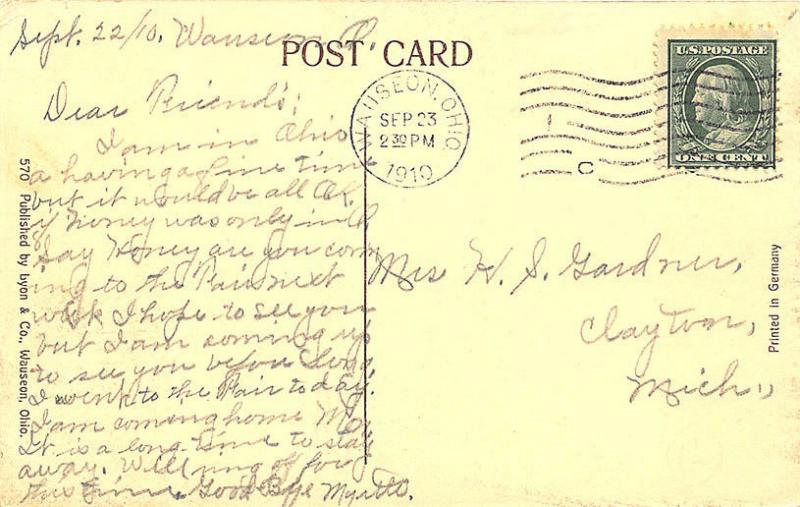 Sept. 22/10. Wauseon O.
POST CARD
U.S. POSTAGE
ONE CENT
WAUSEON, OHIO
SEP 23
2 30 PM
1910
C
Dear Friends;
I am in Ohio
a having a fine time
but it would be all O.K.
if Honey was only in O
Say Honey are you com
ing to the Fair next
week I hope to see you
but I am coming up
to see you before long,
I went to the Fair to day.
I am coming home Mon
It is a long time to stay
away. Will ring off for
this time. Good Bye Myrtle.
Mrs H. S. Gardner,
Clayton,
Mich.,
570 Published by Lyon & Co., Wauseon, Ohio.
Printed in Germany